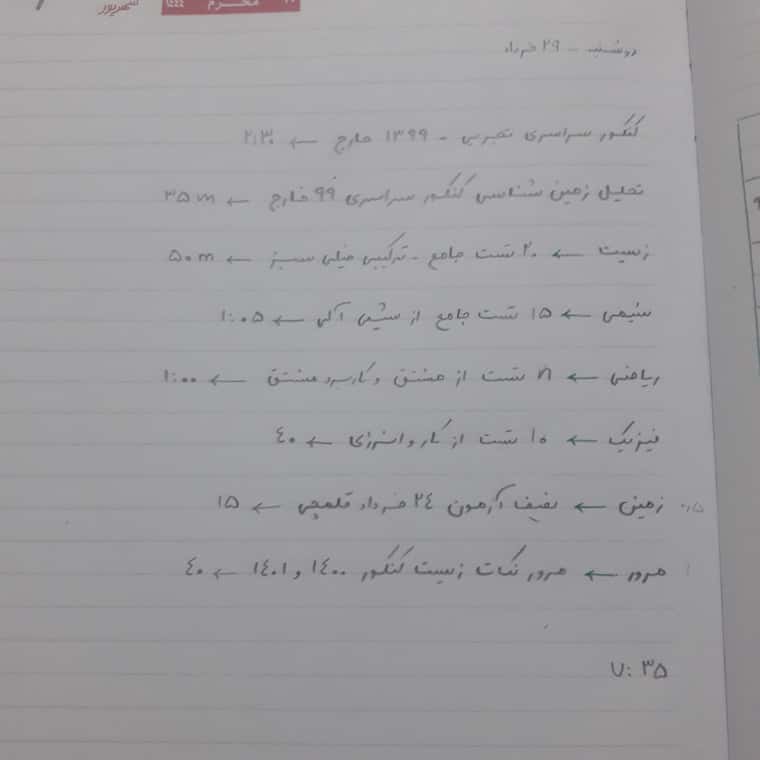 محرم ۱۴۴۴
شهریور
دوشنبه - ۲۹ خرداد
کنکور سراسری تجربی - ۱۳۹۹ خارج ← ۲:۳۰
تحلیل زمین شناسی کنکور سراسری ۹۹ خارج ← ۳۵ m
زیست ← ۲۰ تست جامع - ترکیبی خیلی سبز ← ۵۰ m
شیمی ← ۱۵ تست جامع از شیمی آلی ← ۱:۰۵
ریاضی ← ۲۱ تست از مشتق و کاربرد مشتق ← ۱:۰۰
فیزیک ← ۱۰ تست از کار و انرژی ← ۴۰
زمین ← نصف آزمون ۲۴ خرداد قلمچی ← ۱۵
مرور ← مرور نکات زیست کنکور ۱۴۰۰ و ۱۴۰۱ ← ۴۰
۷:۳۵